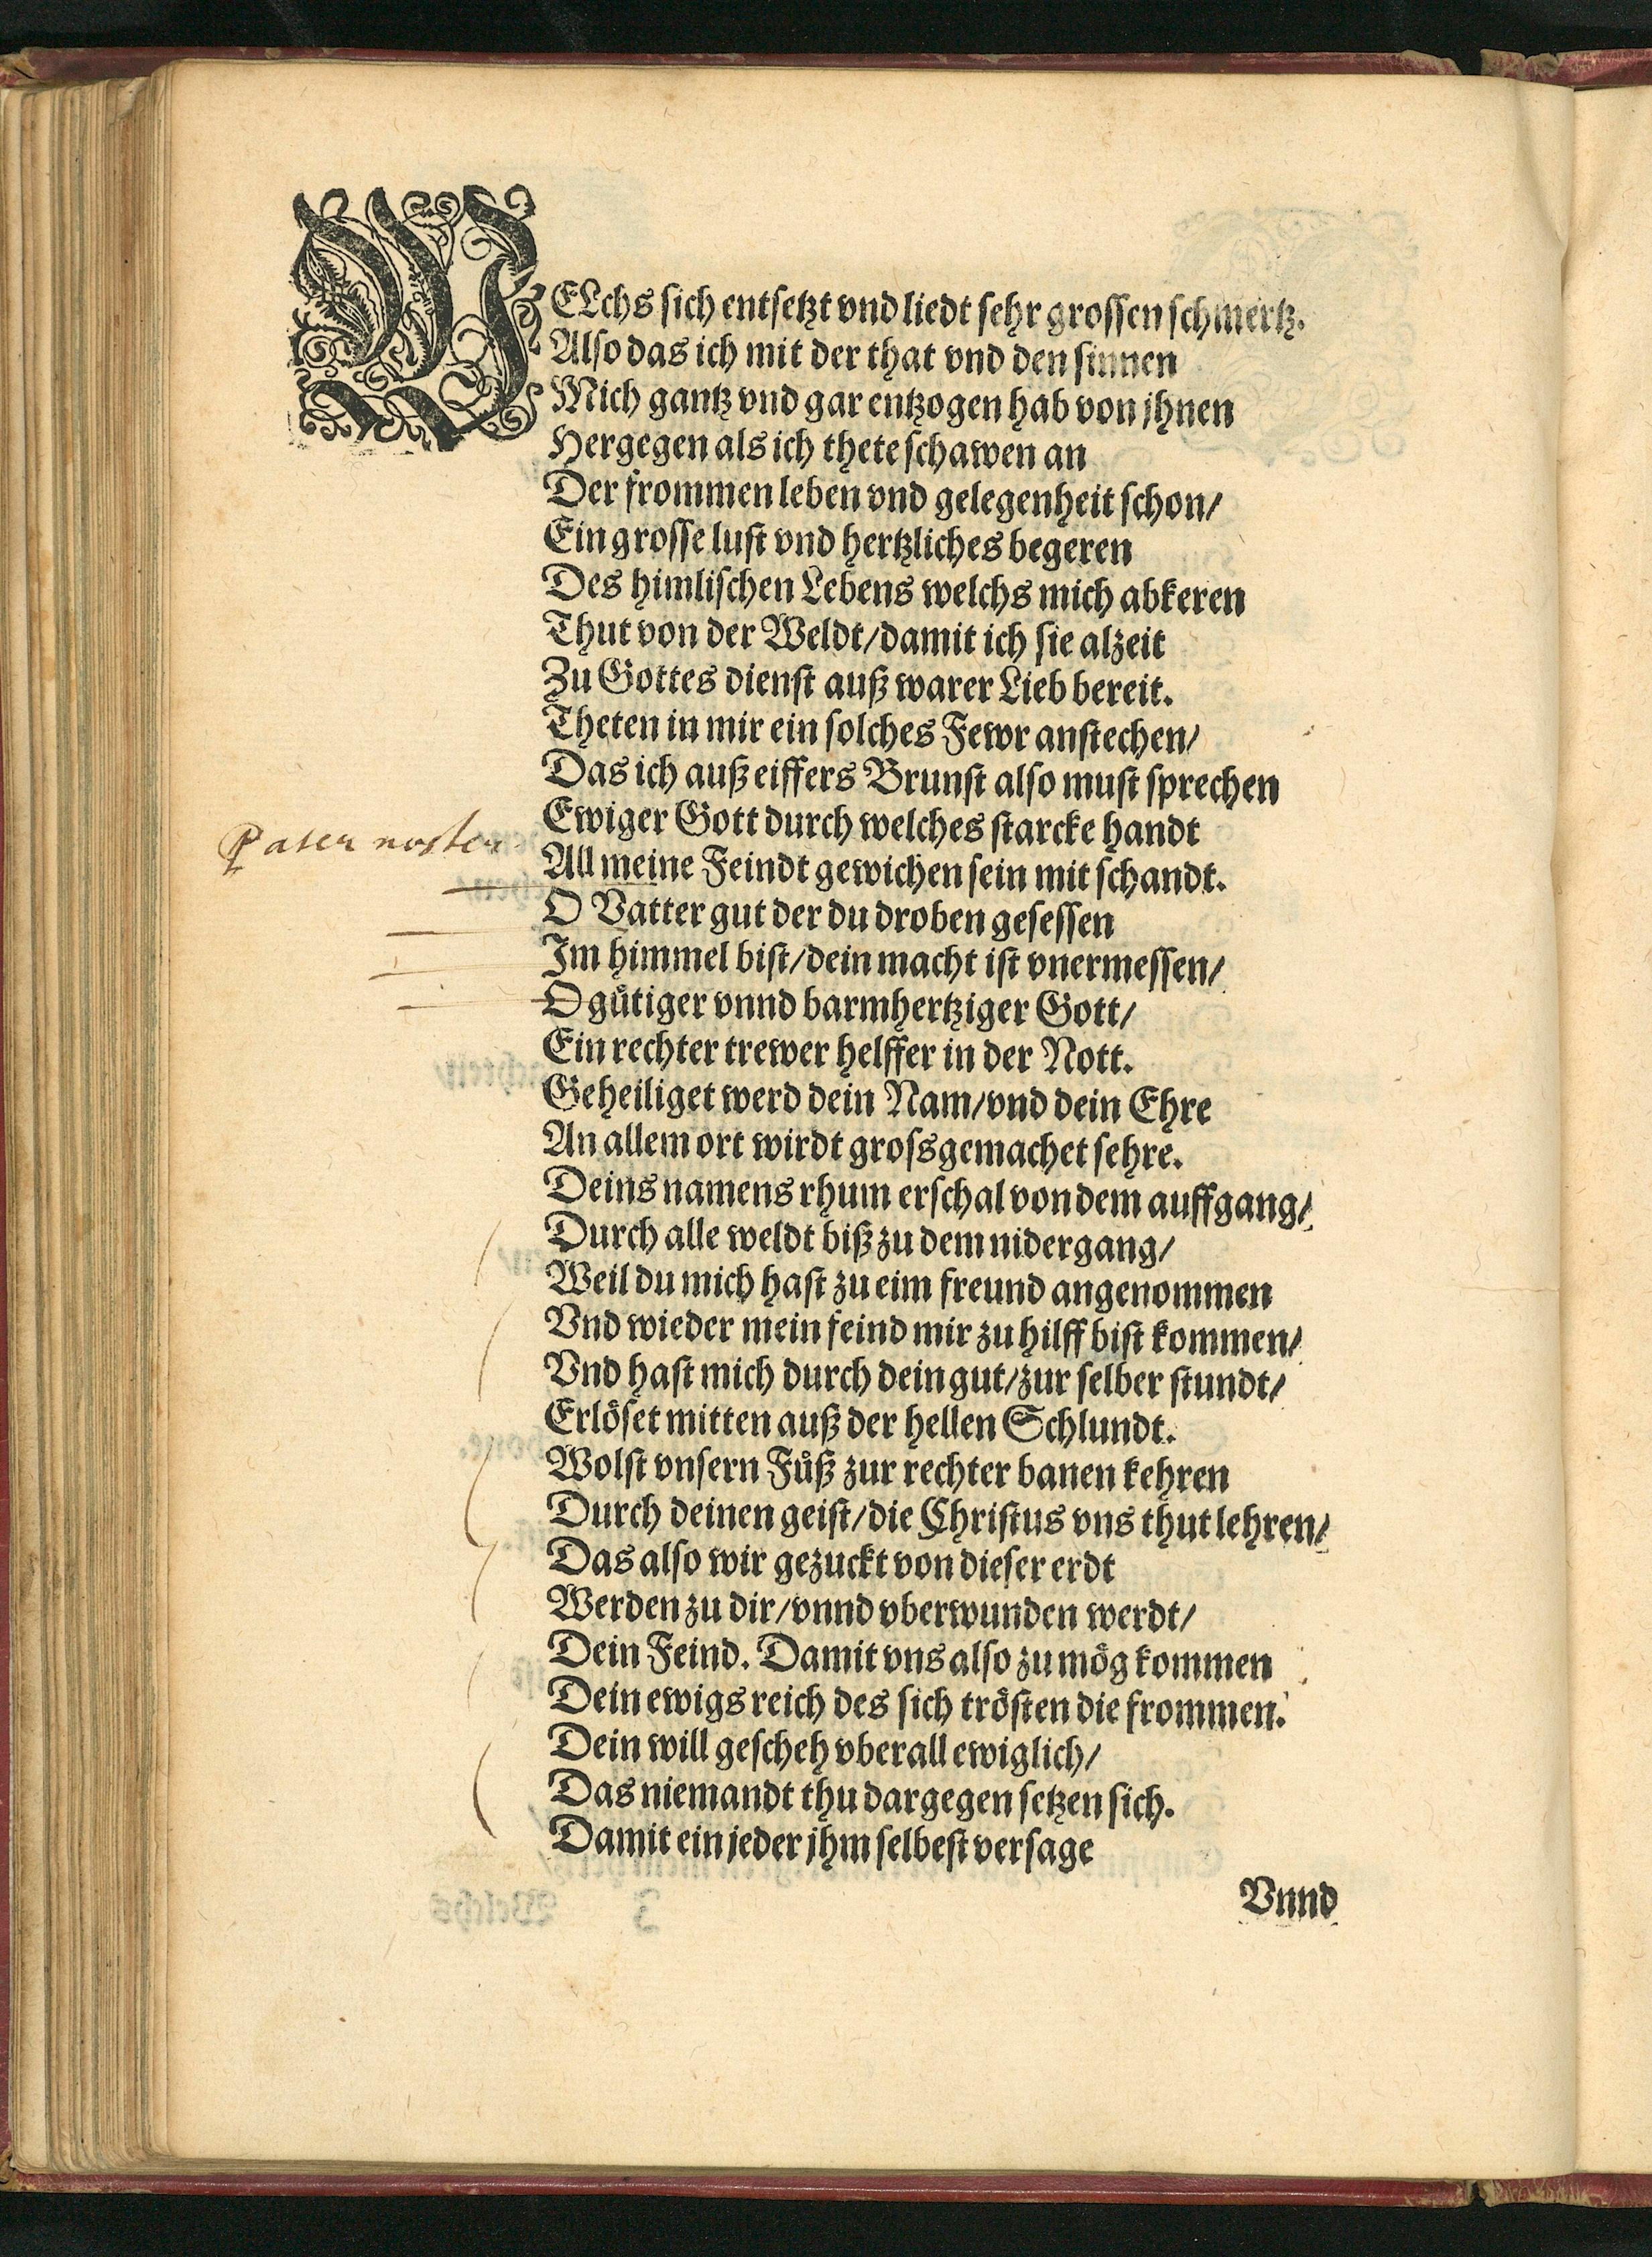 WELchs sich entsetzt vnd liedt sehr grossen schmertz.
Also das ich mit der that vnd den sinnen
Mich gantz vnd gar entzogen hab von jhnen
Hergegen als ich thete schawen an
Der frommen leben vnd gelegenheit schon/
Ein grosse lust vnd hertzliches begeren
Des himlischen Lebens welchs mich abkeren
Thut von der Weldt/damit ich sie alzeit
Zu Gottes dienst auß warer Lieb bereit.
Theten in mir ein solches Fewr anstechen/
Das ich auß eiffers Brunst also must sprechen
Ewiger Gott durch welches starcke handt
Pater noster
All meine Feindt gewichen sein mit schandt.
O Vatter gut der du droben gesessen
Im himmel bist/dein macht ist vnermessen/
O gütiger vnnd barmhertziger Gott/
Ein rechter trewer helffer in der Nott.
Geheiliget werd dein Nam/vnd dein Ehre
An allem ort wirdt grossgemachet sehre.
Deins namens rhum erschal von dem auffgang/
Durch alle weldt biß zu dem nidergang/
Weil du mich hast zu eim freund angenommen
Vnd wieder mein feind mir zu hilff bist kommen/
Vnd hast mich durch dein gut/zur selber stundt/
Erlöset mitten auß der hellen Schlundt.
Wolst vnsern Füß zur rechter banen kehren
Durch deinen geist/die Christus vns thut lehren/
Das also wir gezuckt von dieser erdt
Werden zu dir/vnnd vberwunden werdt/
Dein Feind. Damit vns also zu mög kommen
Dein ewigs reich des sich trösten die frommen.
Dein will gescheh vberall ewiglich/
Das niemandt thu dargegen setzen sich.
Damit ein jeder jhm selbest versage
Vnnd